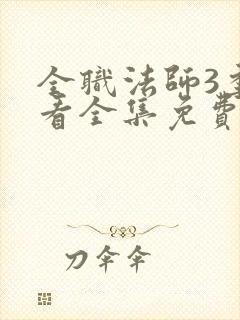 全職法師3
看全集免費
刀伞伞